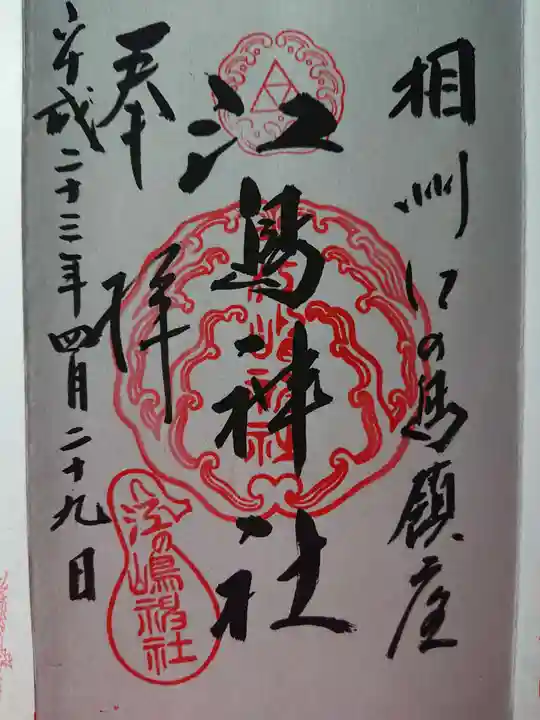 相州江の島鎮座
江島神社
奉拝
平成二十三年四月二十九日
江の嶋
社